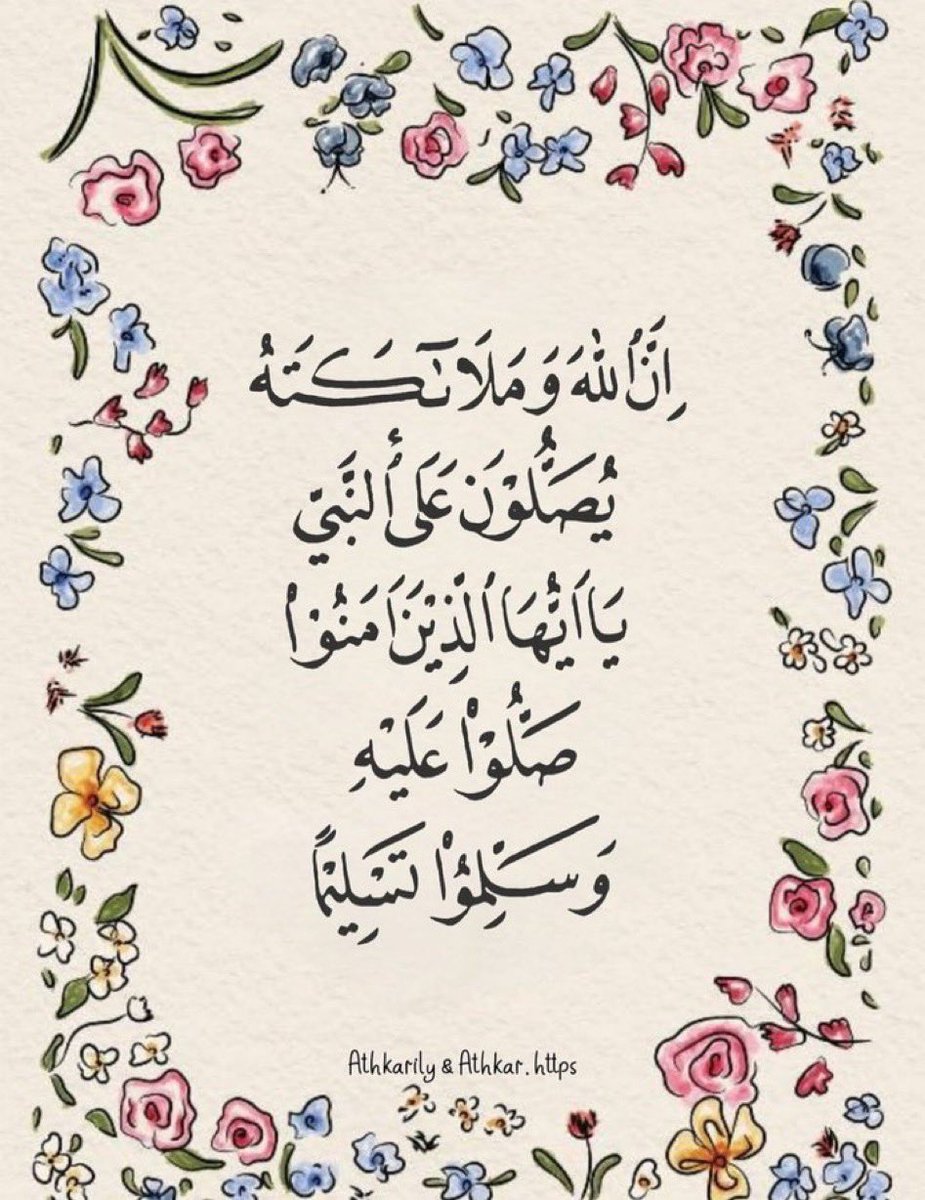 اِنَّ ٱللهَ وَ مَلَائكَتَهُ
يُصَلُّوْنَ عَلَى ٱلنَّبَيِّ
يَا اَيُّهَا ٱلَّذِيْنَ اٰمَنُوْا
صَلُّوْا عَلَيْهِ
وَ سَلِّمُوْا تَسْلِيْمًا
Athkarily & Athkar.https